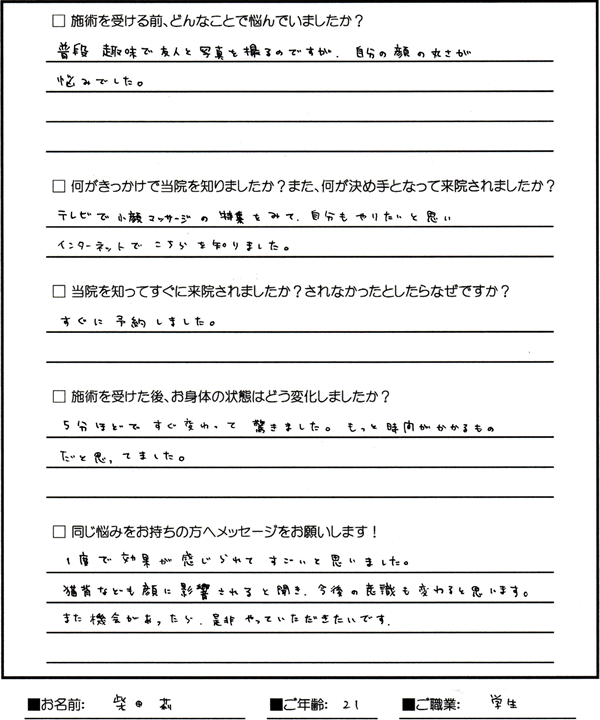 □ 施術を受ける前、どんなことで悩んでいましたか？
普段 趣味で友人と写真を撮るのですが、自分の顔の丸さが
悩みでした。
□ 何がきっかけで当院を知りましたか？また、何が決め手となって来院されましたか？
テレビで小顔マッサージの特集をみて、自分もやりたいと思い
インターネットでこちらを知りました。
□ 当院を知ってすぐに来院されましたか？されなかったとしたらなぜですか？
すぐに予約しました。
□ 施術を受けた後、お身体の状態はどう変化しましたか？
5分ほどですぐ変わって驚きました。もっと時間がかかるもの
だと思ってました。
□ 同じ悩みをお持ちの方へメッセージをお願いします！
1度で効果が感じられてすごいと思いました。
猫背なども顔に影響されると聞き、今後の意識も変わると思います。
また機会があったら、是非やっていただきたいです。
■お名前: 柴田 ■ご年齢: 21 ■ご職業: 学生